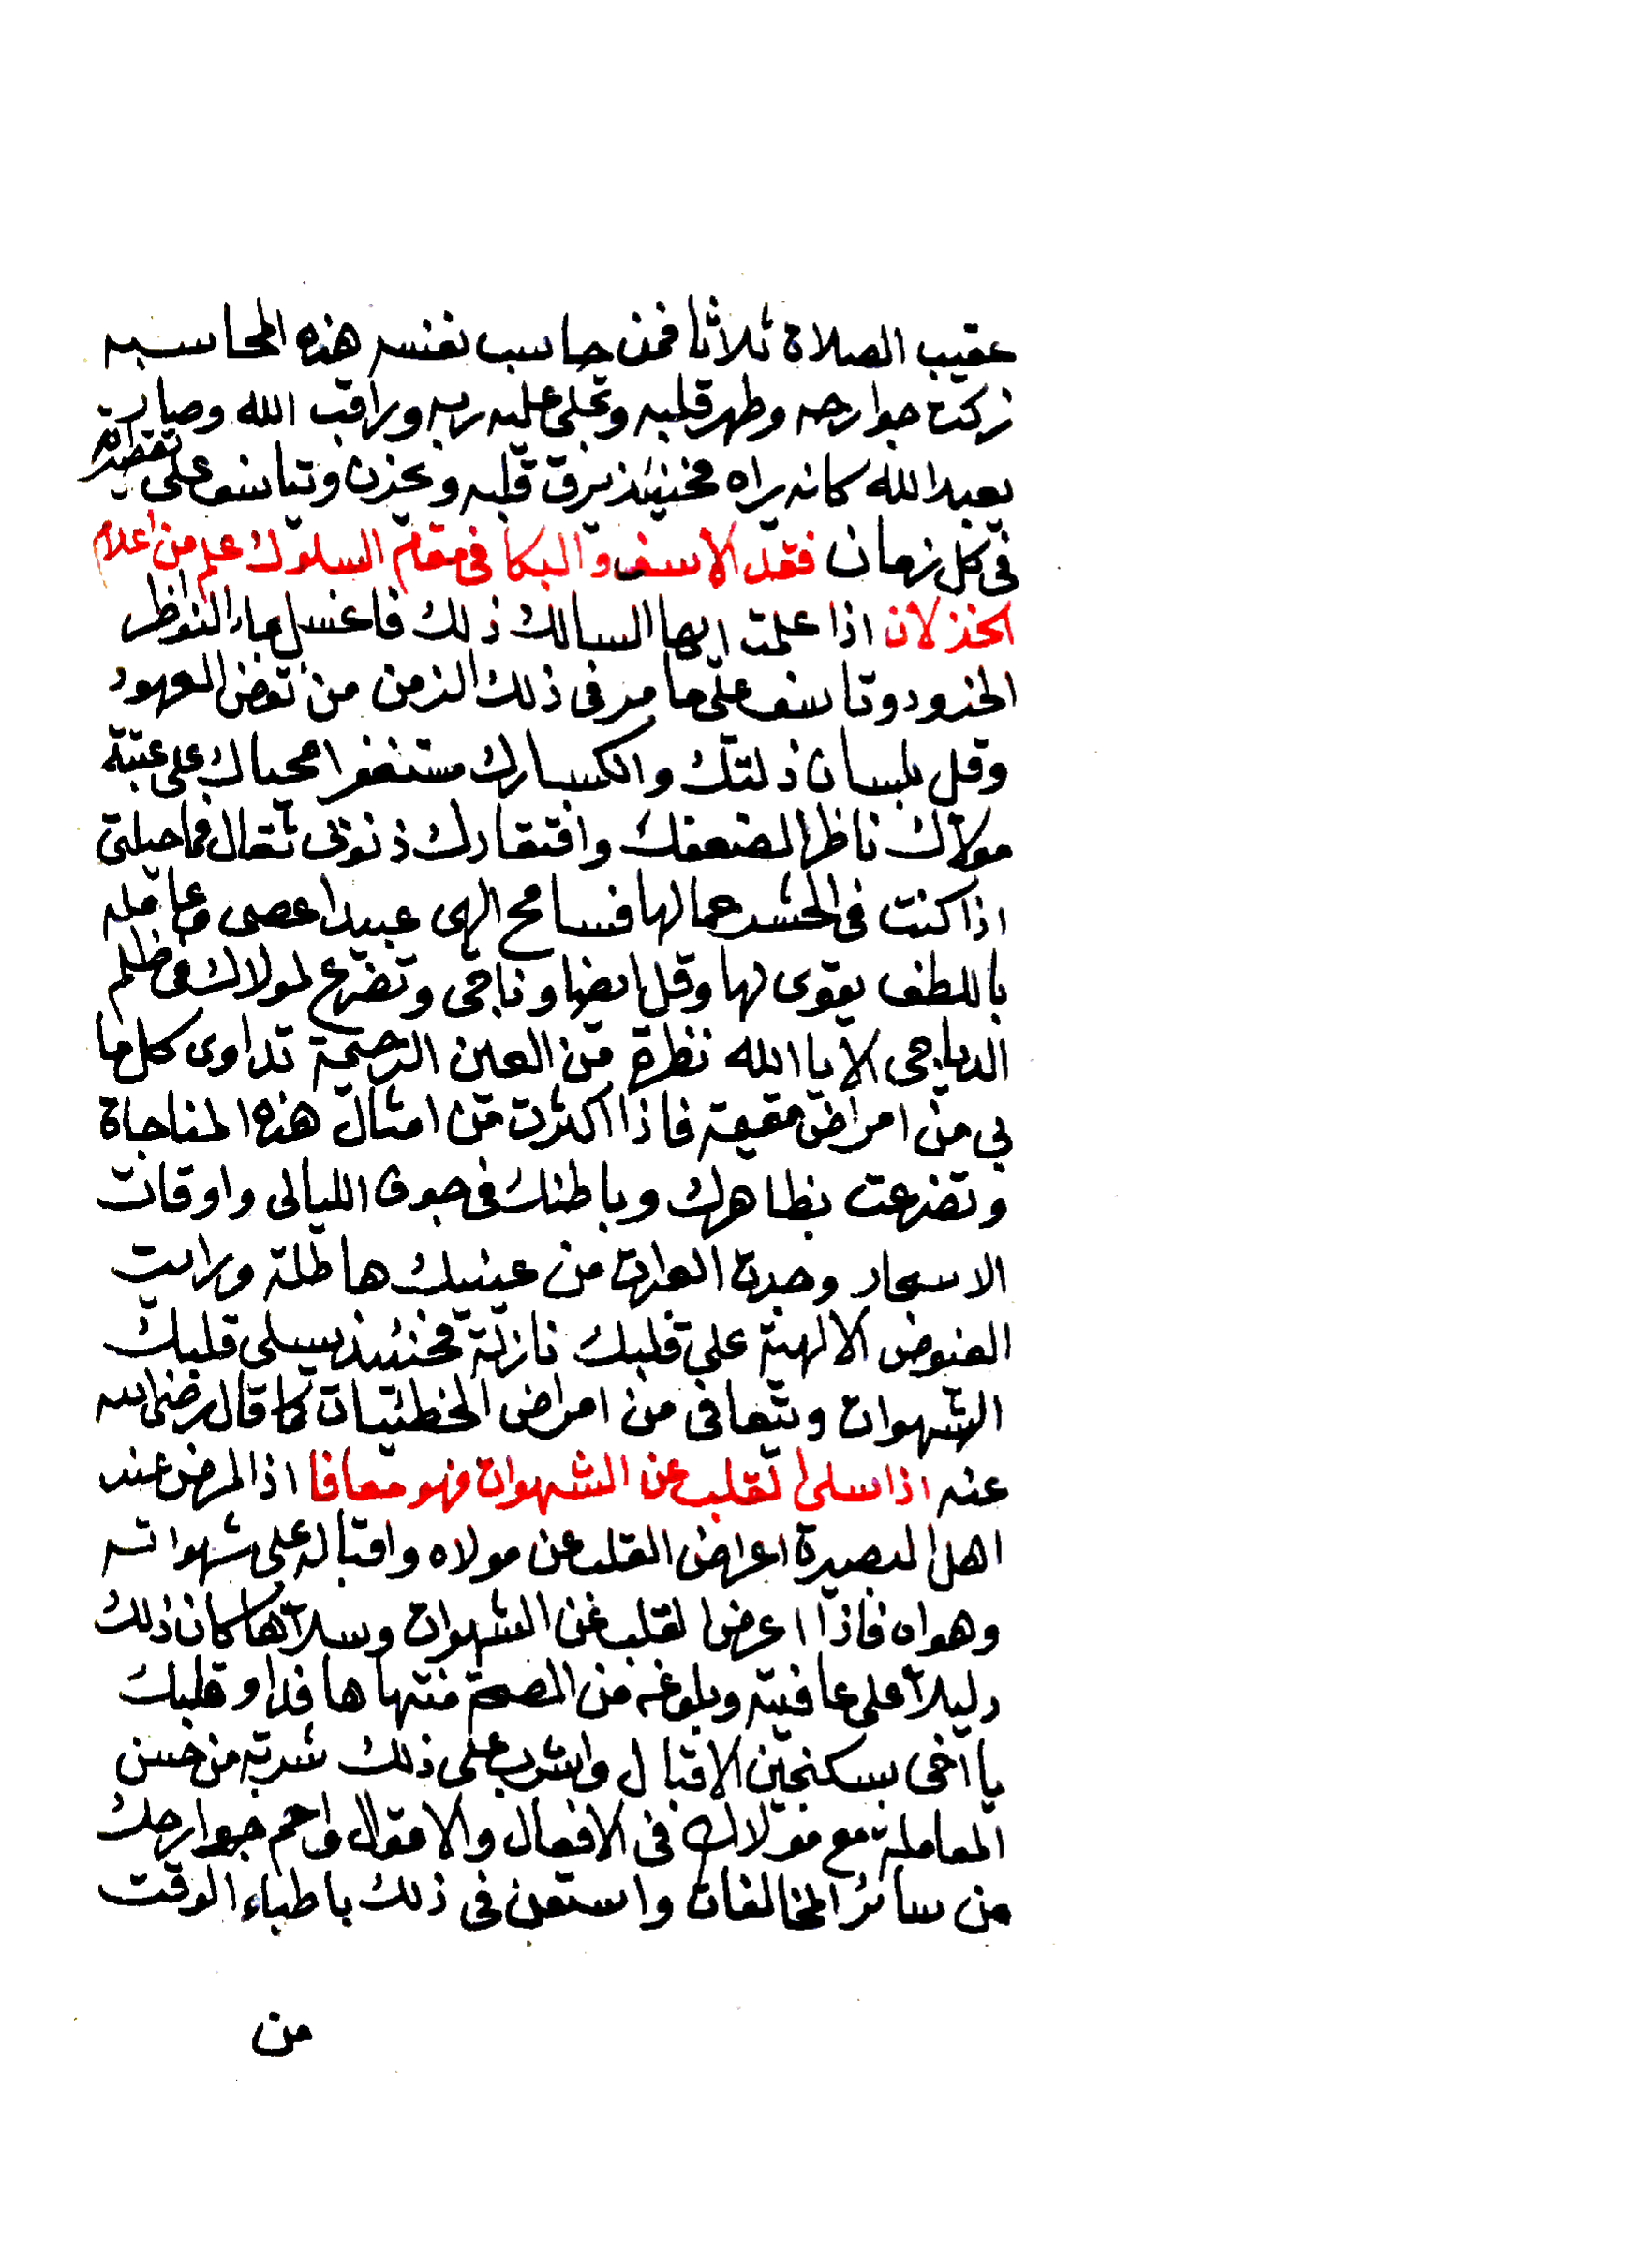 عقيب الصلاة ثلاثا فمن حاسب نفسه هذه المحاسبه
زكت جوارحه وطهر قلبه وتجلى عليه ربه وراقب الله وصار
يعبد الله كانه يراه فحينئذ يرق قلبه ويحزن ويتاسف على تقصيره
في كل زمان فقد الاسف والبكا في مقام السلوك علم من اعلام
الخذلان اذا علمت ايها السالك ذلك فاغسل بماء النواظر
الخدود وتاسف على ما مر في ذلك الزمن من نقض العهود
وقل بلسان ذلتك وانكسارك مستغفرا محياك على عتبة
مولاك ناظرا لضعفك وافتقارك ذنوبى ثقال فما حيلتى
اذا كنت في الحشر حمالها فسامح الهى عبيدا عصى وعامله
باللطف يقوى لها وقل ايضا وناجى وتضرع لمولاك في ظلم
الدياجى الا يا الله نظرة من العين الرحيمة تداوى كل ما
بي من امراض مقيمة فاذا اكثرت من امثال هذه المناجاة
وتضرعت بظاهرك وباطنك في جوف الليالى واوقات
الاسحار وجدت العبرات من عينيك هاطلة ورايت
الفيوض الالهية على قلبك نازلة فحينئذ يسلى قلبك
الشهوات ويتعافى من امراض الخطيئات كما قال رضى الله
عنه اذا سلى القلب عن الشهوات فهو معافا اذ المرض عند
اهل البصيرة اعراض القلب عن مولاه واقباله على شهواته
وهواه فاذا اعرض القلب عن الشهوات وسلاها كان ذلك
دليلا على عافيته وبلوغه من الصحة منتهاها فداو قلبك
يا اخى بسكنجبين الاقبال واشرب على ذلك شربة من حسن
المعاملة مع مولاك في الافعال والاقوال واحم جوارحك
من سائر المخالفات واستعن في ذلك باطباء الوقت
من